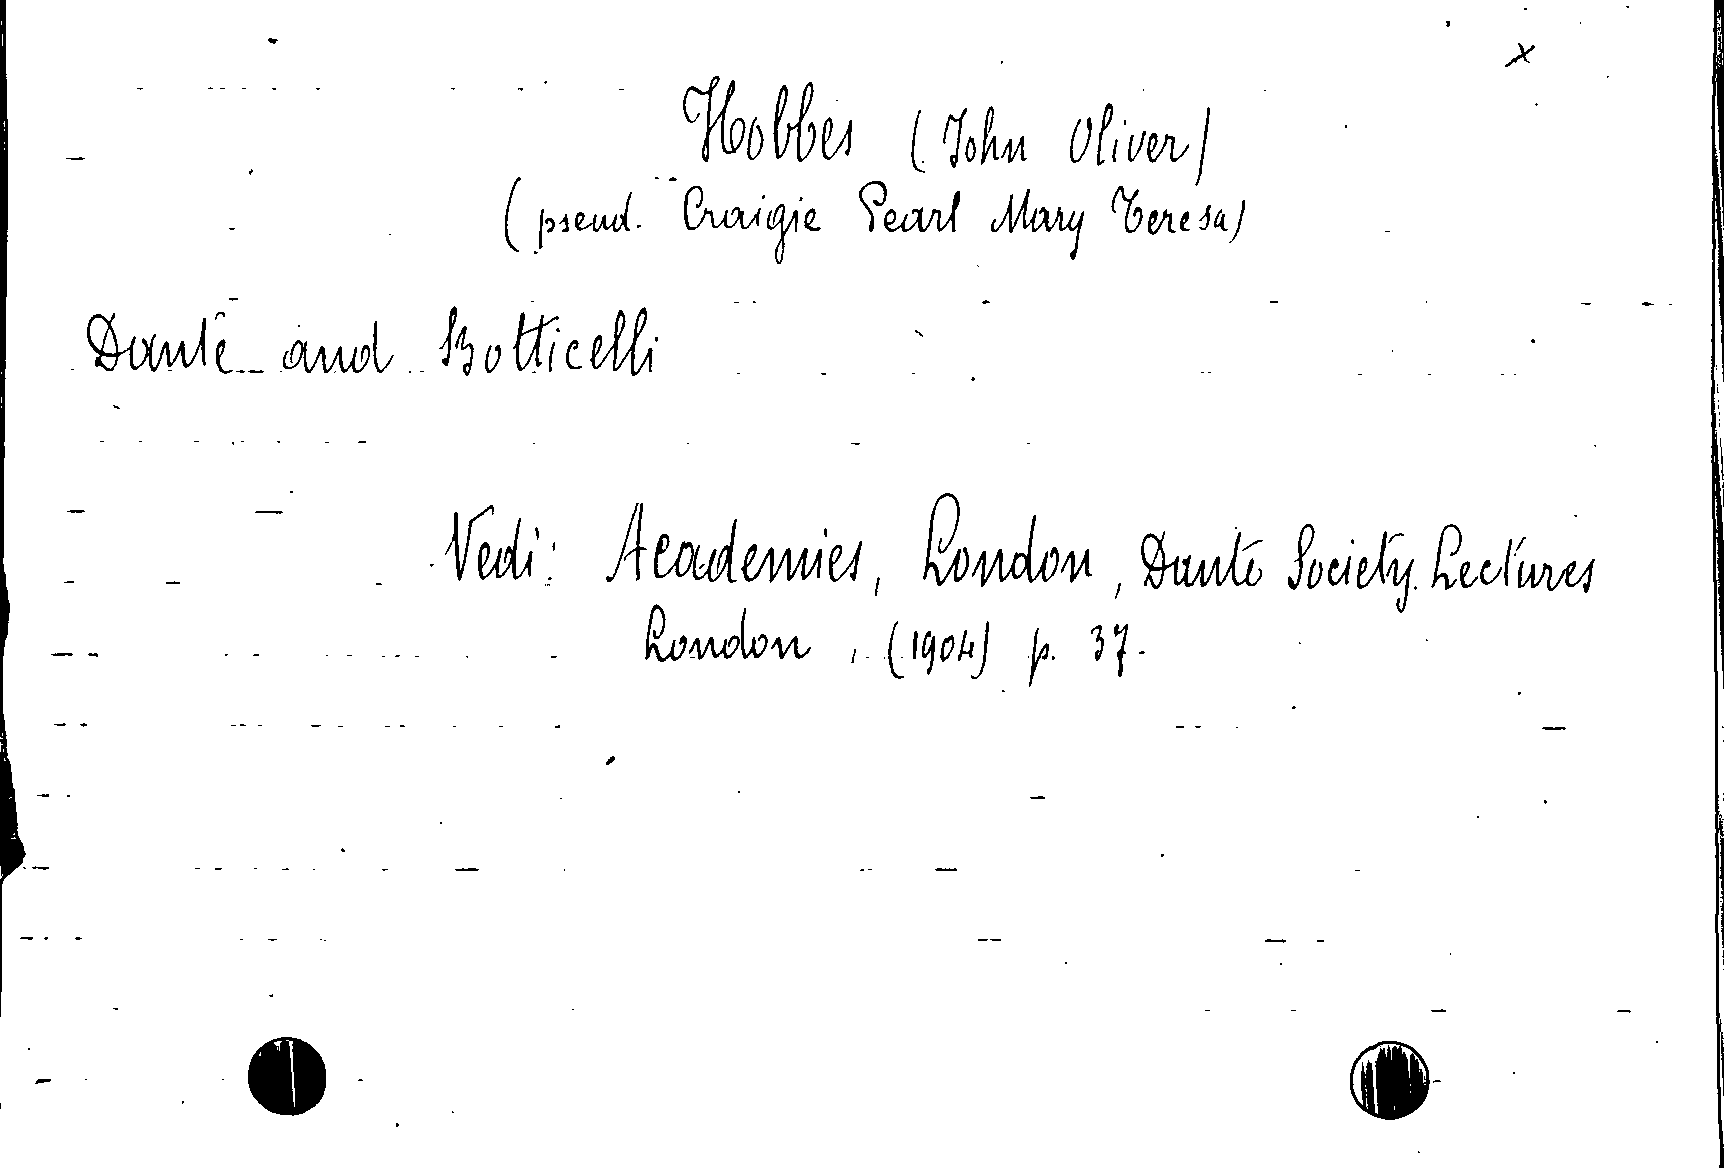 x
Hobbes (John Oliver)
(pseud. Craigie Pearl Mary Teresa)
Dante and Botticelli
Vedi: Academies, London, Dante Society. Lectures
London, (1904) p. 37.